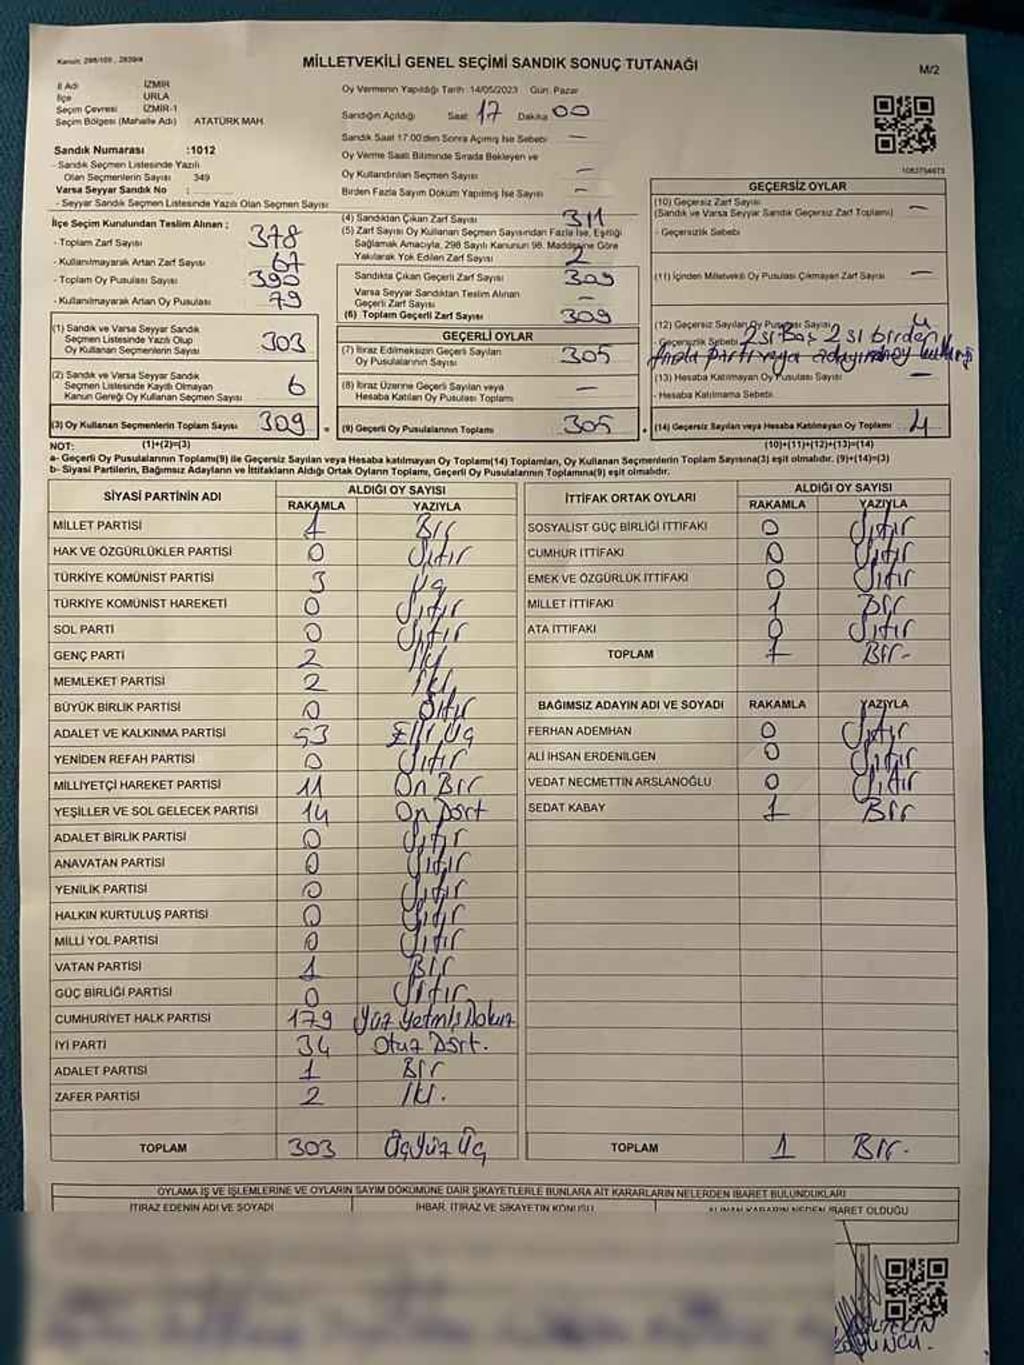 Kanun: 298/105 , 2839/4
MİLLETVEKİLİ GENEL SEÇİMİ SANDIK SONUÇ TUTANAĞI
M/2
İl Adı İZMİR
İlçe URLA
Seçim Çevresi İZMİR-1
Seçim Bölgesi (Mahalle Adı) ATATÜRK MAH.
Oy Vermenin Yapıldığı Tarih :14/05/2023 Gün: Pazar
Sandığın Açıldığı Saat 17 Dakika 00
Sandık Saat 17:00'den Sonra Açılmış İse Sebebi —
Oy Verme Saati Bitiminde Sırada Bekleyen ve
Oy Kullandırılan Seçmen Sayısı —
Birden Fazla Sayım Döküm Yapılmış İse Sayısı —
Sandık Numarası :1012
- Sandık Seçmen Listesinde Yazılı
Olan Seçmenlerin Sayısı 349
Varsa Seyyar Sandık No :
- Seyyar Sandık Seçmen Listesinde Yazılı Olan Seçmen Sayısı
İlçe Seçim Kurulundan Teslim Alınan :
- Toplam Zarf Sayısı 378
- Kullanılmayarak Artan Zarf Sayısı 67
- Toplam Oy Pusulası Sayısı 390
- Kullanılmayarak Artan Oy Pusulası 79
(1) Sandık ve Varsa Seyyar Sandık
Seçmen Listesinde Yazılı Olup
Oy Kullanan Seçmenlerin Sayısı 303
(2) Sandık ve Varsa Seyyar Sandık
Seçmen Listesinde Kayıtlı Olmayan
Kanun Gereği Oy Kullanan Seçmen Sayısı 6
(3) Oy Kullanan Seçmenlerin Toplam Sayısı 309
(1)+(2)=(3)
(4) Sandıktan Çıkan Zarf Sayısı 311
(5) Zarf Sayısı Oy Kullanan Seçmen Sayısından Fazla İse, Eşitliği
Sağlamak Amacıyla, 298 Sayılı Kanunun 98. Maddesine Göre
Yakılarak Yok Edilen Zarf Sayısı 2
Sandıkta Çıkan Geçerli Zarf Sayısı 309
Varsa Seyyar Sandıktan Teslim Alınan
Geçerli Zarf Sayısı —
(6) Toplam Geçerli Zarf Sayısı 309
GEÇERLİ OYLAR
(7) İtiraz Edilmeksizin Geçerli Sayılan
Oy Pusulalarının Sayısı 305
(8) İtiraz Üzerine Geçerli Sayılan veya
Hesaba Katılan Oy Pusulası Toplamı —
(9) Geçerli Oy Pusulalarının Toplamı 305
1082754673
GEÇERSİZ OYLAR
(10) Geçersiz Zarf Sayısı —
(Sandık ve Varsa Seyyar Sandık Geçersiz Zarf Toplamı)
- Geçersizlik Sebebi
(11) İçinden Milletvekili Oy Pusulası Çıkmayan Zarf Sayısı —
(12) Geçersiz Sayılan Oy Pusulası Sayısı 4
- Geçersizlik Sebebi 2 si Boş 2 si birden
fazla partiye veya adayına oy
(13) Hesaba Katılmayan Oy Pusulası Sayısı —
- Hesaba Katılmama Sebebi
(14) Geçersiz Sayılan veya Hesaba Katılmayan Oy Toplamı 4
(10)+(11)+(12)+(13)=(14)
NOT:
a- Geçerli Oy Pusulalarının Toplamı(9) ile Geçersiz Sayılan veya Hesaba katılmayan Oy Toplamı(14) Toplamları, Oy Kullanan Seçmenlerin Toplam Sayısına(3) eşit olmalıdır. (9)+(14)=(3)
b- Siyasi Partilerin, Bağımsız Adayların ve İttifakların Aldığı Ortak Oyların Toplamı, Geçerli Oy Pusulalarının Toplamına(9) eşit olmalıdır.
SİYASİ PARTİNİN ADI
ALDIĞI OY SAYISI
RAKAMLA YAZIYLA
MİLLET PARTİSİ 1 Bir
HAK VE ÖZGÜRLÜKLER PARTİSİ 0 Sıfır
TÜRKİYE KOMÜNİST PARTİSİ 3 Üç
TÜRKİYE KOMÜNİST HAREKETİ 0 Sıfır
SOL PARTİ 0 Sıfır
GENÇ PARTİ 2 İki
MEMLEKET PARTİSİ 2 İki
BÜYÜK BİRLİK PARTİSİ 0 Sıfır
ADALET VE KALKINMA PARTİSİ 53 Elli Üç
YENİDEN REFAH PARTİSİ 0 Sıfır
MİLLİYETÇİ HAREKET PARTİSİ 11 On Bir
YEŞİLLER VE SOL GELECEK PARTİSİ 14 On Dört
ADALET BİRLİK PARTİSİ 0 Sıfır
ANAVATAN PARTİSİ 0 Sıfır
YENİLİK PARTİSİ 0 Sıfır
HALKIN KURTULUŞ PARTİSİ 0 Sıfır
MİLLİ YOL PARTİSİ 0 Sıfır
VATAN PARTİSİ 1 Bir
GÜÇ BİRLİĞİ PARTİSİ 0 Sıfır
CUMHURİYET HALK PARTİSİ 179 Yüz Yetmiş Dokuz
İYİ PARTİ 34 Otuz Dört.
ADALET PARTİSİ 1 Bir
ZAFER PARTİSİ 2 İki.
TOPLAM 303 Üç Yüz Üç
İTTİFAK ORTAK OYLARI
ALDIĞI OY SAYISI
RAKAMLA YAZIYLA
SOSYALİST GÜÇ BİRLİĞİ İTTİFAKI 0 Sıfır
CUMHUR İTTİFAKI 0 Sıfır
EMEK VE ÖZGÜRLÜK İTTİFAKI 0 Sıfır
MİLLET İTTİFAKI 1 Bir
ATA İTTİFAKI 0 Sıfır
TOPLAM 1 Bir-
BAĞIMSIZ ADAYIN ADI VE SOYADI RAKAMLA YAZIYLA
FERHAN ADEMHAN 0 Sıfır
ALİ İHSAN ERDENİLGEN 0 Sıfır
VEDAT NECMETTİN ARSLANOĞLU 0 Sıfır
SEDAT KABAY 1 Bir
TOPLAM 1 Bir-
OYLAMA İŞ VE İŞLEMLERİNE VE OYLARIN SAYIM DÖKÜMÜNE DAİR ŞİKAYETLERLE BUNLARA AİT KARARLARIN NELERDEN İBARET BULUNDUKLARI
İTİRAZ EDENİN ADI VE SOYADI İHBAR, İTİRAZ VE ŞİKAYETİN KONUSU ALINAN KARARIN NEDEN İBARET OLDUĞU